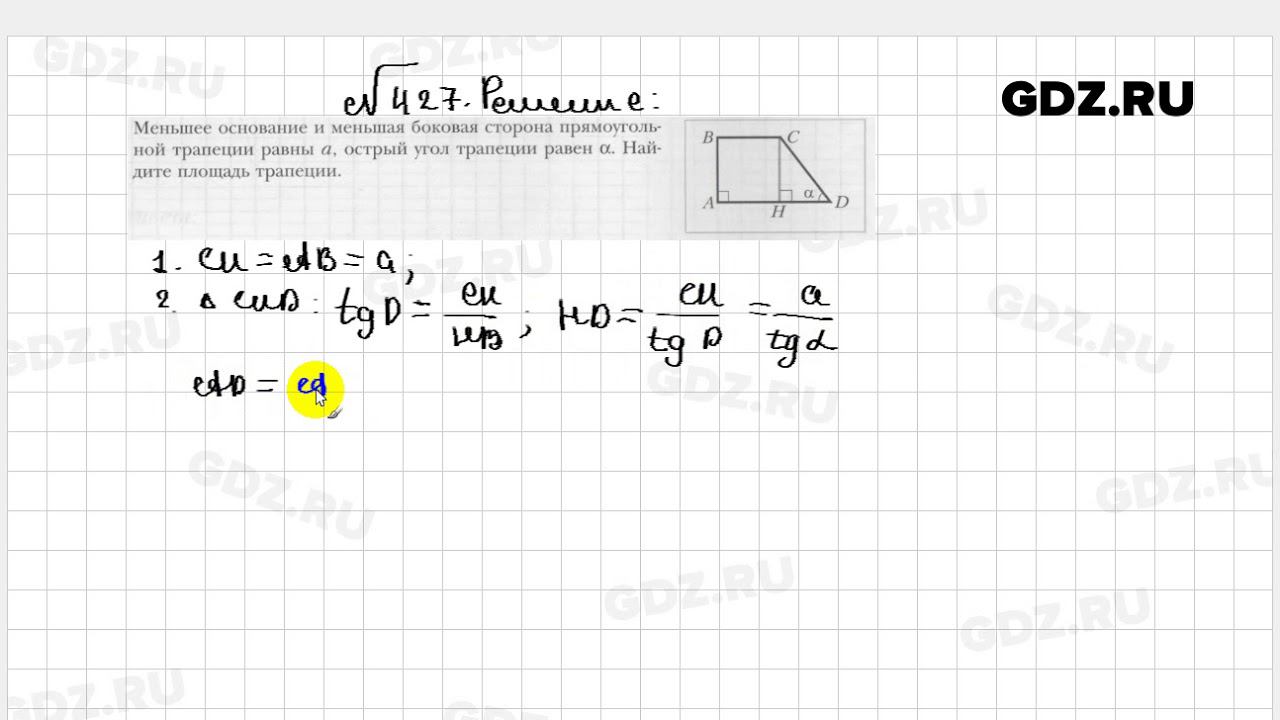 GDZ.RU
№427. Решение:
Меньшее основание и меньшая боковая сторона прямоуголь-
ной трапеции равны a, острый угол трапеции равен α. Най-
дите площадь трапеции.
B C
A H α D
1. CH = AB = a;
2. △ CHD: tg D = CH/HD; HD = CH/tg D = a/tg α
AD = A
GDZ.RU
GDZ.RU
GDZ.RU
GDZ.RU
GDZ.RU
GDZ.RU
GDZ.RU
GDZ.RU
GDZ.RU
GDZ.RU
GDZ.RU
GDZ.RU
GDZ.RU